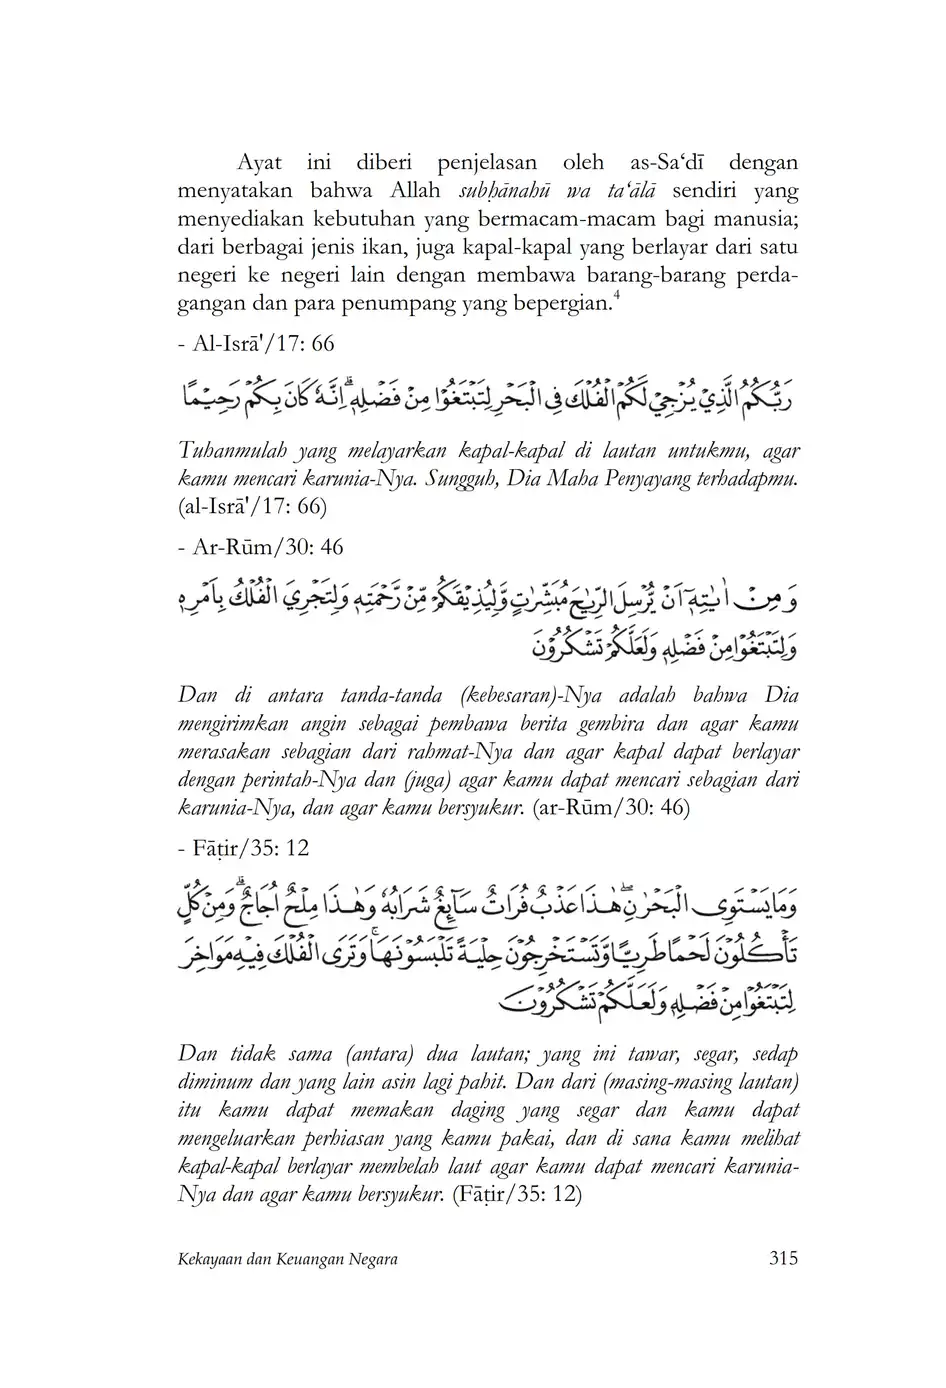 Ayat ini diberi penjelasan oleh as-Sa‘dī dengan
menyatakan bahwa Allah subḥānahū wa ta‘ālā sendiri yang
menyediakan kebutuhan yang bermacam-macam bagi manusia;
dari berbagai jenis ikan, juga kapal-kapal yang berlayar dari satu
negeri ke negeri lain dengan membawa barang-barang perda-
gangan dan para penumpang yang bepergian.4
- Al-Isrā'/17: 66
رَبُّكُمُ الَّذِيْ يُزْجِيْ لَكُمُ الْفُلْكَ فِى الْبَحْرِ لِتَبْتَغُوْا مِنْ فَضْلِهٖۗ اِنَّهٗ كَانَ بِكُمْ رَحِيْمًا
Tuhanmulah yang melayarkan kapal-kapal di lautan untukmu, agar
kamu mencari karunia-Nya. Sungguh, Dia Maha Penyayang terhadapmu.
(al-Isrā'/17: 66)
- Ar-Rūm/30: 46
وَمِنْ اٰيٰتِهٖٓ اَنْ يُّرْسِلَ الرِّيٰحَ مُبَشِّرٰتٍ وَّلِيُذِيْقَكُمْ مِّنْ رَّحْمَتِهٖ وَلِتَجْرِيَ الْفُلْكُ بِاَمْرِهٖ
وَلِتَبْتَغُوْا مِنْ فَضْلِهٖ وَلَعَلَّكُمْ تَشْكُرُوْنَ
Dan di antara tanda-tanda (kebesaran)-Nya adalah bahwa Dia
mengirimkan angin sebagai pembawa berita gembira dan agar kamu
merasakan sebagian dari rahmat-Nya dan agar kapal dapat berlayar
dengan perintah-Nya dan (juga) agar kamu dapat mencari sebagian dari
karunia-Nya, dan agar kamu bersyukur. (ar-Rūm/30: 46)
- Fāṭir/35: 12
وَمَا يَسْتَوِى الْبَحْرٰنِۖ هٰذَا عَذْبٌ فُرَاتٌ سَاۤىِٕغٌ شَرَابُهٗ وَهٰذَا مِلْحٌ اُجَاجٌۗ وَمِنْ كُلٍّ
تَأْكُلُوْنَ لَحْمًا طَرِيًّا وَّتَسْتَخْرِجُوْنَ حِلْيَةً تَلْبَسُوْنَهَاۚ وَتَرَى الْفُلْكَ فِيْهِ مَوَاخِرَ
لِتَبْتَغُوْا مِنْ فَضْلِهٖ وَلَعَلَّكُمْ تَشْكُرُوْنَ
Dan tidak sama (antara) dua lautan; yang ini tawar, segar, sedap
diminum dan yang lain asin lagi pahit. Dan dari (masing-masing lautan)
itu kamu dapat memakan daging yang segar dan kamu dapat
mengeluarkan perhiasan yang kamu pakai, dan di sana kamu melihat
kapal-kapal berlayar membelah laut agar kamu dapat mencari karunia-
Nya dan agar kamu bersyukur. (Fāṭir/35: 12)
Kekayaan dan Keuangan Negara 315